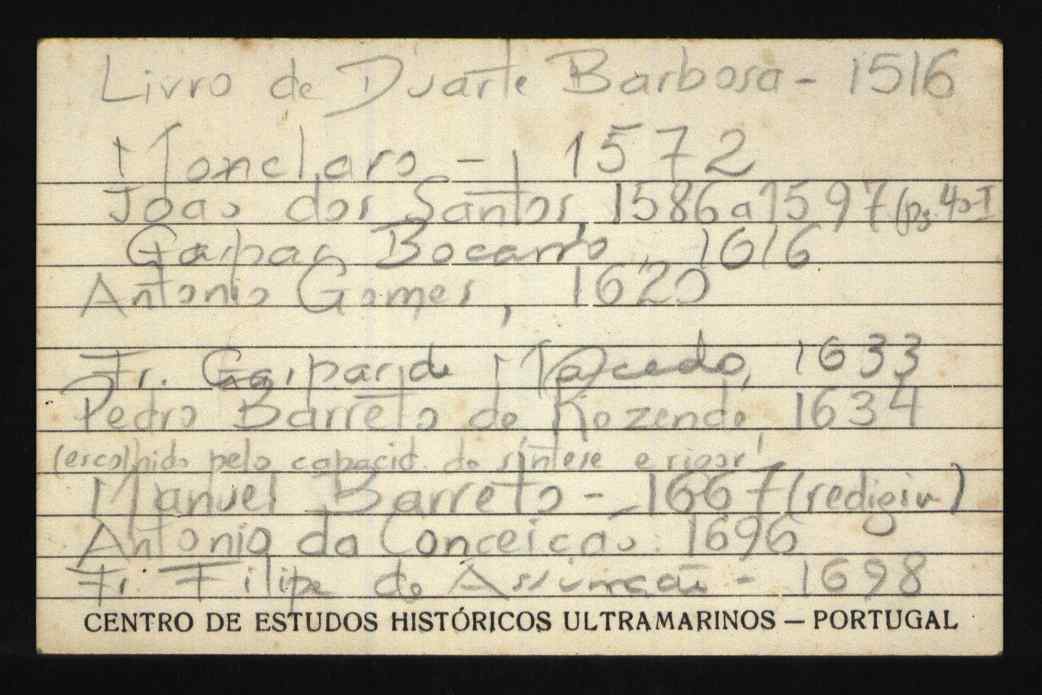 Livro de Duarte Barbosa - 1516
Monclaro - 1572
Joao dos Santos, 1586 a 1597
Gaspar Bocarro, 1616
Antonio Gomes, 1620
Fr. Gaspar de Macedo, 1633
Pedro Barreto de Rezende, 1634
(escolhido pelo capacid. de síntese e rigor!
Manuel Barreto - 1667 (redigiu)
Antonio da Conceicão. 1696
Fr. Filipe de Assunção - 1698
CENTRO DE ESTUDOS HISTÓRICOS ULTRAMARINOS — PORTUGAL